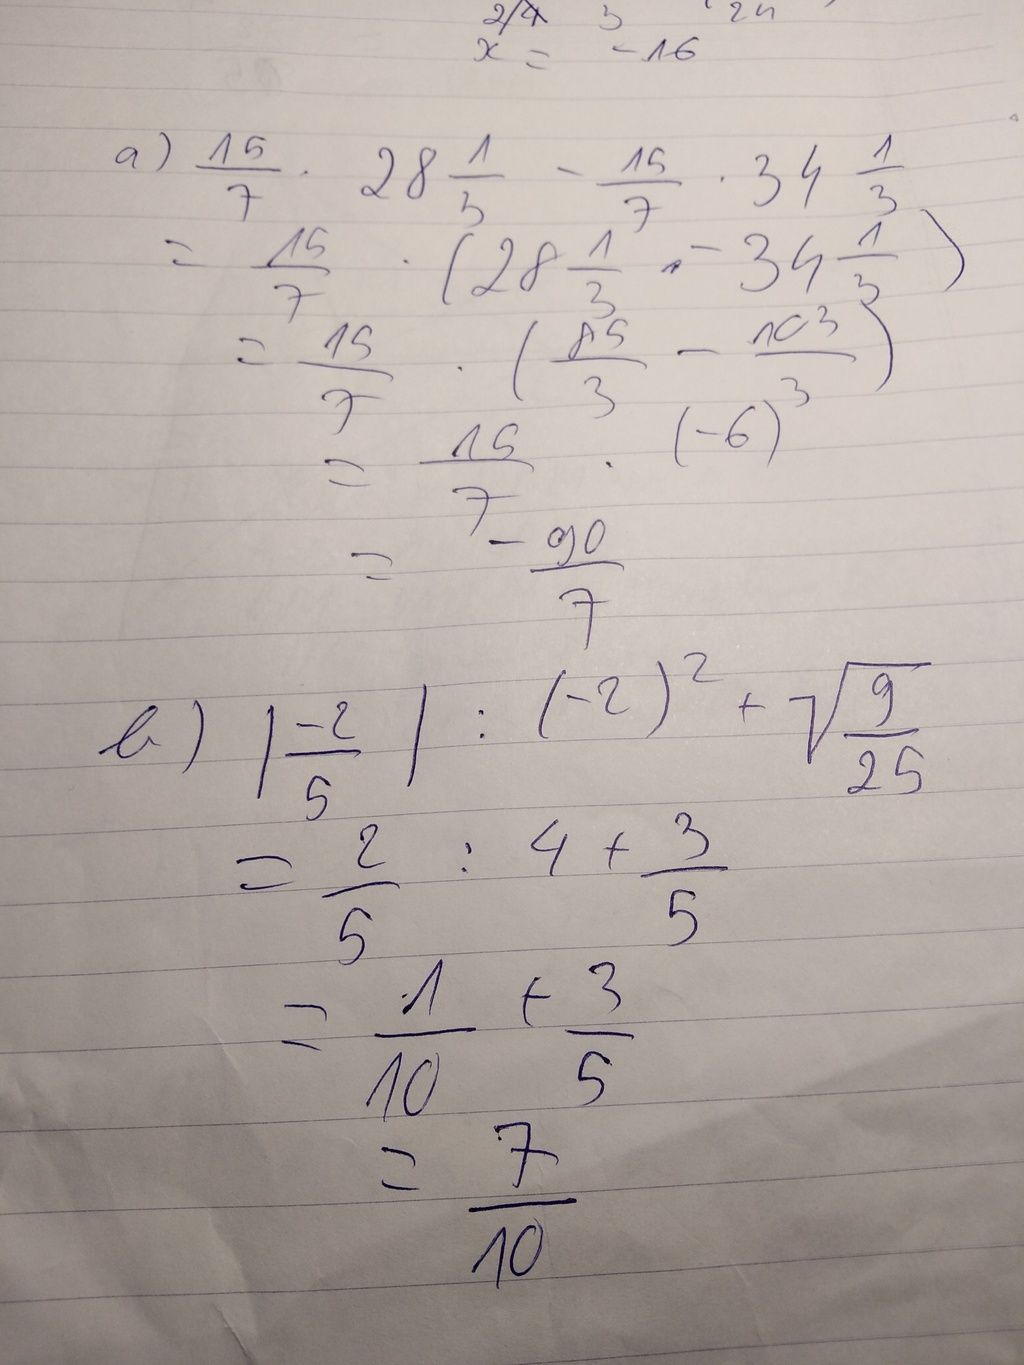 x = -16
a) 15/7 . 28 1/3 - 15/7 . 34 1/3
= 15/7 . (28 1/3 - 34 1/3)
= 15/7 . (85/3 - 103/3)
= 15/7 . (-6)
= -90/7
b) |-2/5| : (-2)² + √(9/25)
= 2/5 : 4 + 3/5
= 1/10 + 3/5
= 7/10